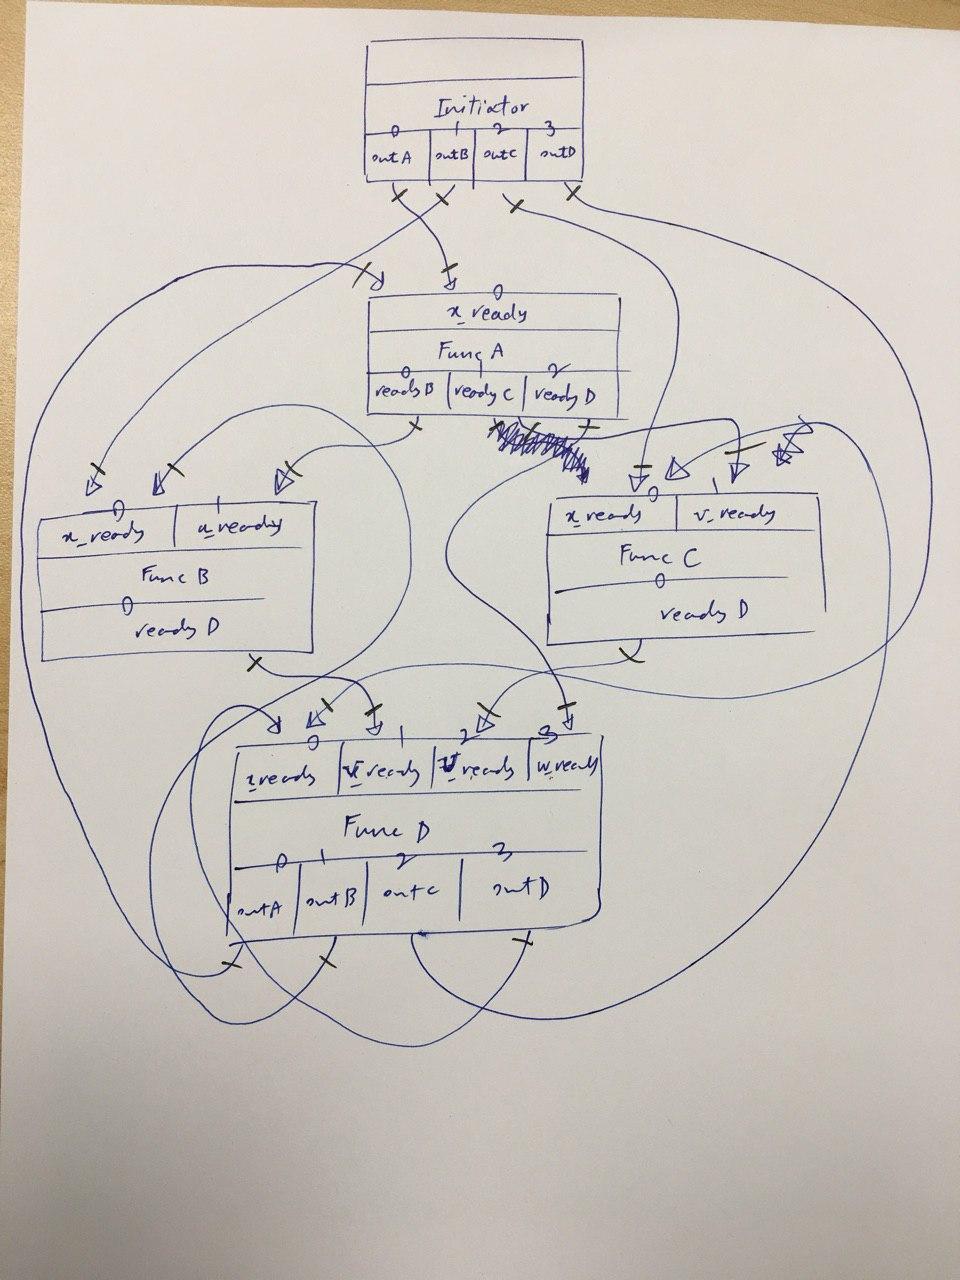 Initiator
0 1 2 3
outA outB outC outD
0
x_ready
Func A
0 1 2
readyB readyC readyD
0 1
x_ready u_ready
Func B
0
readyD
0 1
x_ready v_ready
Func C
0
readyD
0 1 2 3
x ready ready v_ready w_ready
Func D
0 1 2 3
outA outB outC outD